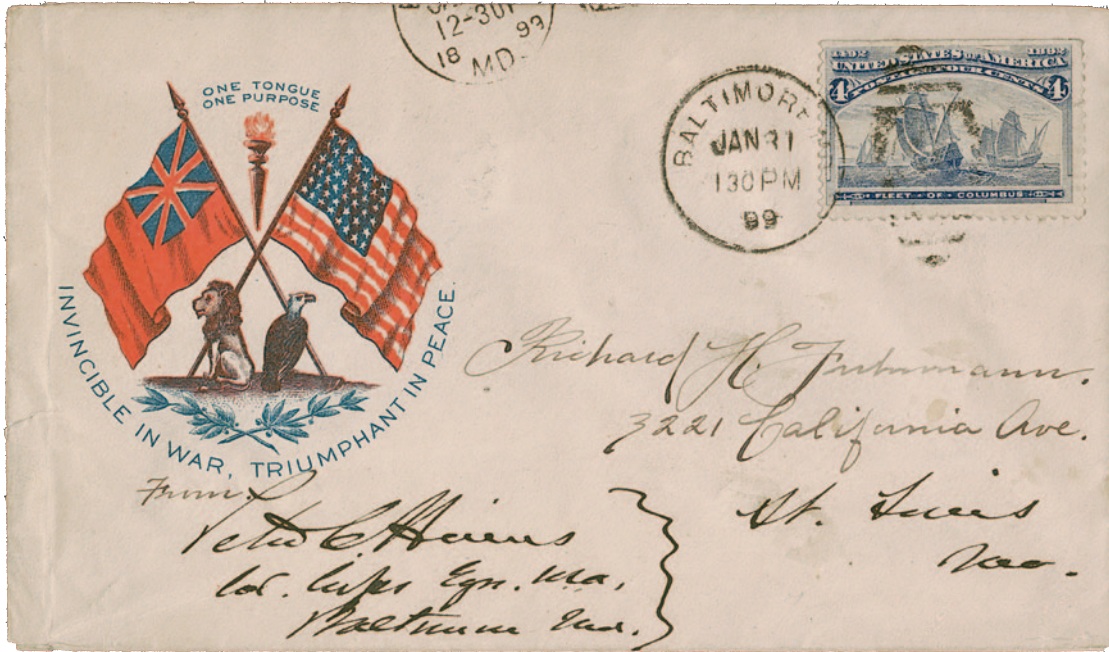 12-30P
18 99
MD.
BALTIMORE
JAN 31
130 PM
99
1492 1892
UNITED STATES OF AMERICA
POSTAGE FOUR CENTS
4 4
FLEET OF COLUMBUS
ONE TONGUE
ONE PURPOSE
INVINCIBLE IN WAR, TRIUMPHANT IN PEACE.
Richard H. Fuhrmann.
3221 California Ave.
St. Louis
Mo.
From.
Peter C. Hains
Corps Eng.
Baltimore Md.